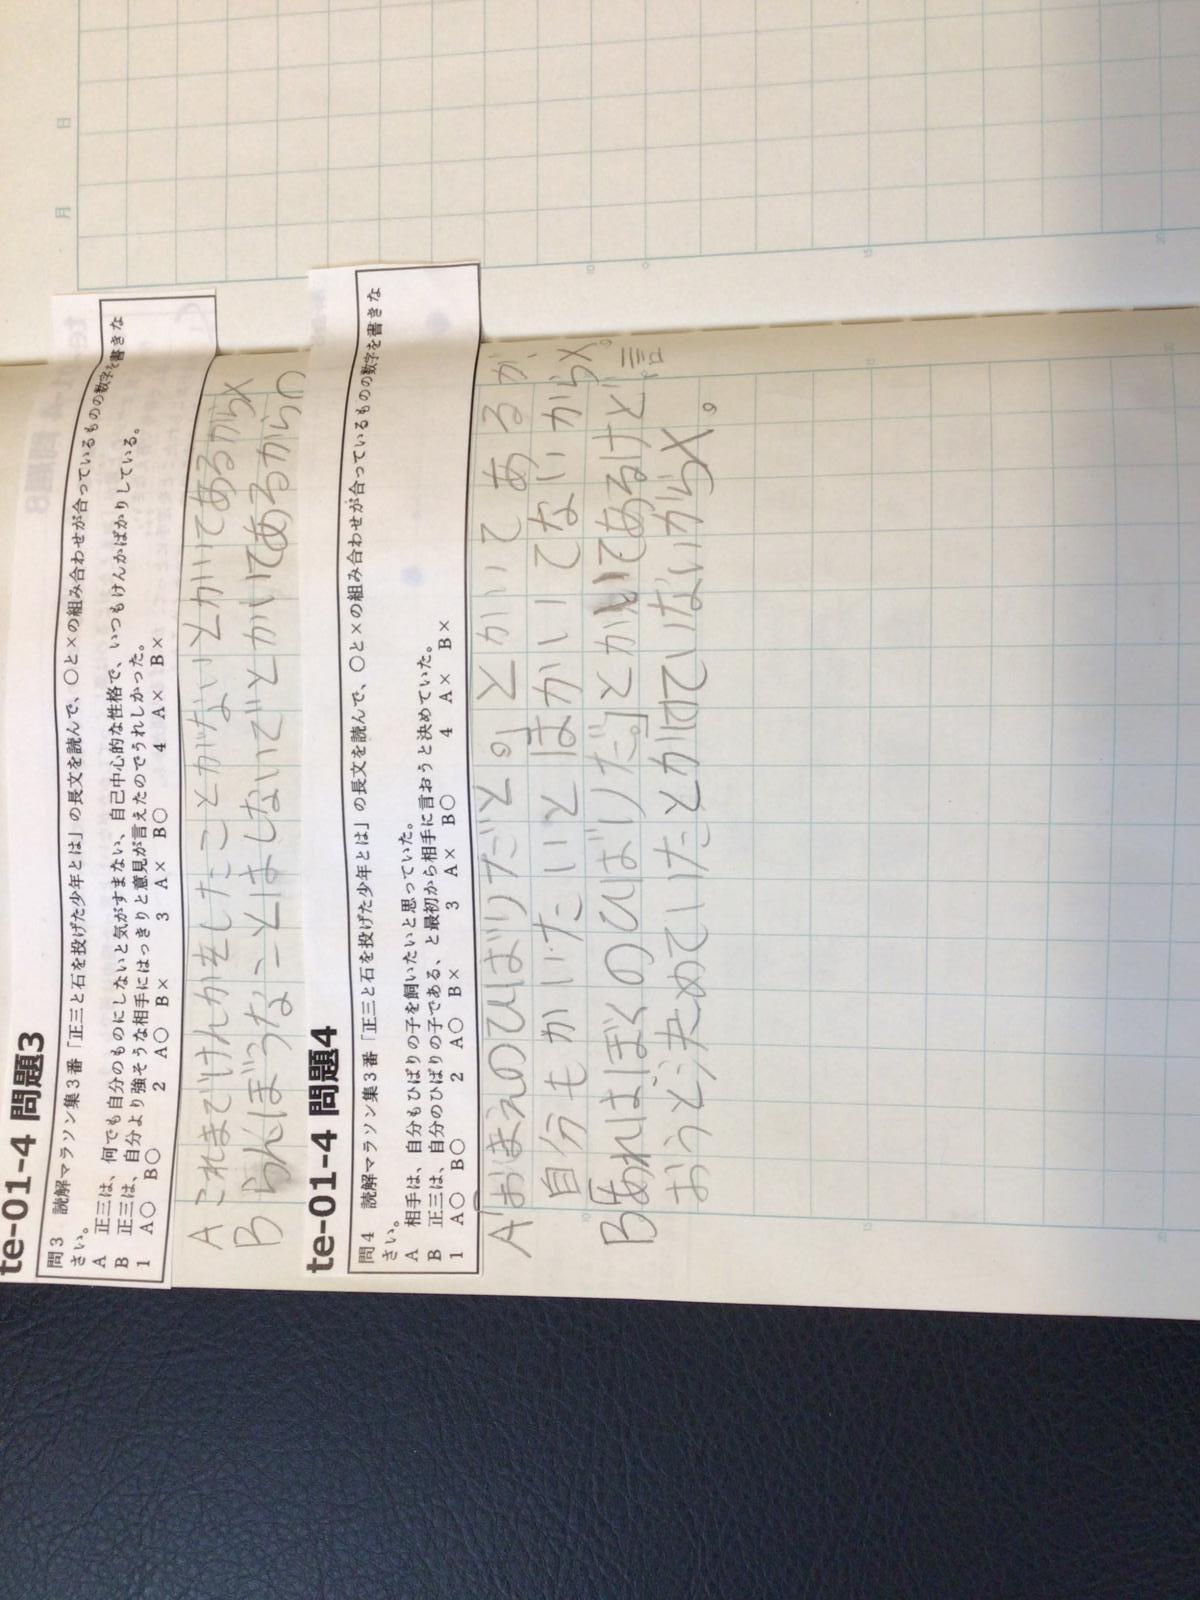 te-01-4 問題3
問3 読解マラソン集3番「正三と石を投げた少年とは」の長文を読んで、○と×の組み合わせが合っているものの数字を書きな
さい。
A 正三は、何でも自分のものにしないと気がすまない、自己中心的な性格で、いつもけんかばかりしている。
B 正三は、自分より強そうな相手にはっきりと意見が言えたのでうれしかった。
1 A○ B○ 2 A○ B× 3 A× B○ 4 A× B×
A これまでけんかをしたことがないとかいてあるから×
B らんぼうなことはしないでとかいてあるから
te-01-4 問題4
問4 読解マラソン集3番「正三と石を投げた少年とは」の長文を読んで、○と×の組み合わせが合っているものの数字を書きな
さい。
A 相手は、自分もひばりの子を飼いたいと思っていた。
B 正三は、自分のひばりの子である、と最初から相手に言おうと決めていた。
1 A○ B○ 2 A○ B× 3 A× B○ 4 A× B×
A「おまえのひばりだと。」とかいてあるが、
自分もかいたいとはかいてないから×。
B「あればぼくのひばりだ。」とかいてあるけど、言
おうと決めていたとか回ていないから×。